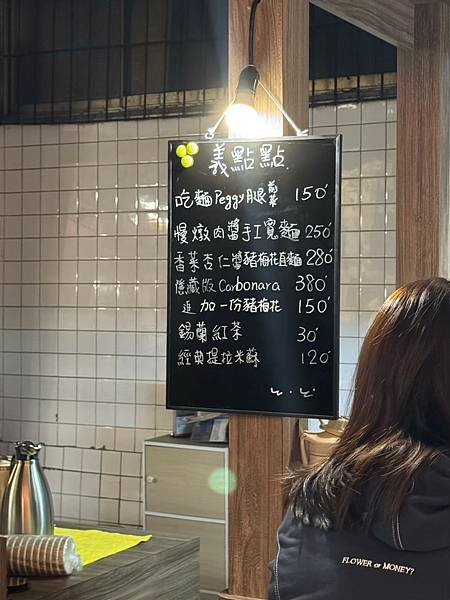 義點點
吃麵Peggy腿前菜 150
慢燉肉醬手工寬麵 250
香菜杏仁醬豬梅花直麵 280
隱藏版Carbonara 380
追加一份豬梅花 150
錫蘭紅茶 30
經典提拉米蘇 120
FLOWER OR MONEY?